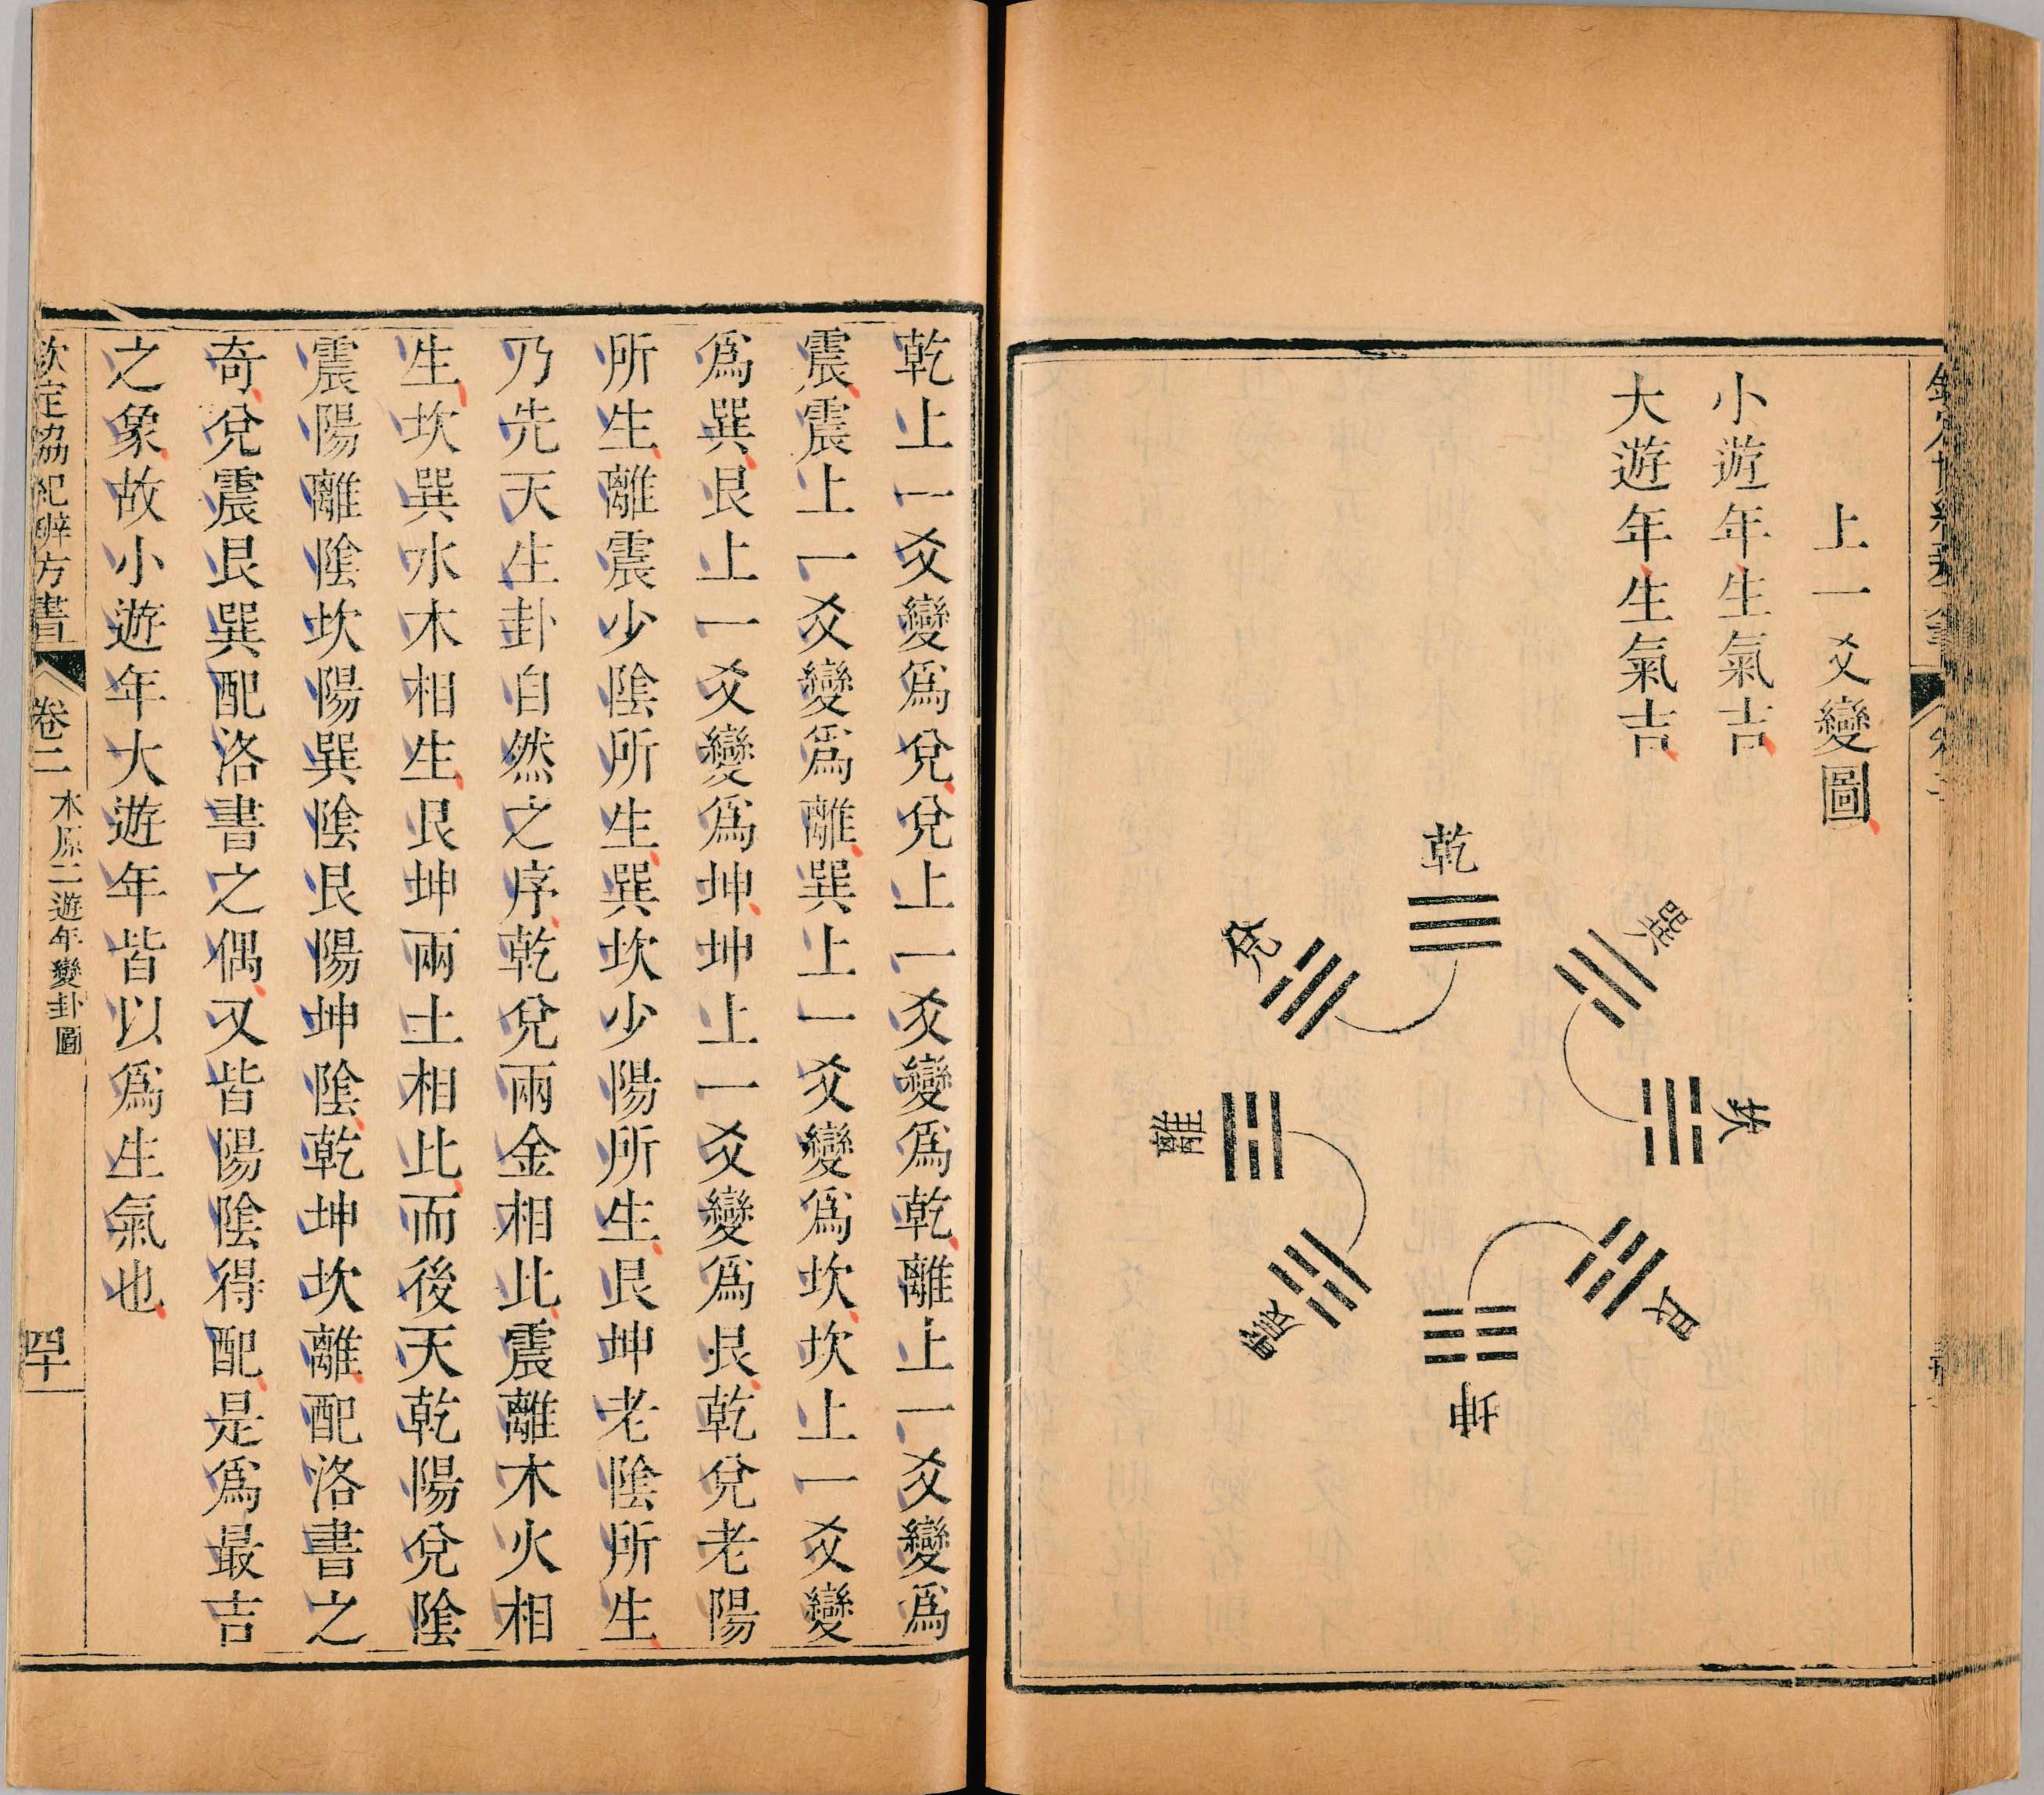 上一爻變圖
小遊年生氣吉
大遊年生氣吉
乾
兌
巽
離
坎
震
艮
坤
乾上一爻變爲兌兌上一爻變爲乾離上一爻變爲
震震上一爻變爲離巽上一爻變爲坎坎上一爻變
爲巽艮上一爻變爲坤坤上一爻變爲艮乾兌老陽
所生離震少陰所生巽坎少陽所生艮坤老陰所生
乃先天生卦自然之序乾兌兩金相比震離木火相
生坎巽水木相生艮坤兩土相比而後天乾陽兌陰
震陽離陰坎陽巽陰艮陽坤陰乾坤坎離配洛書之
奇兌震艮巽配洛書之偶又皆陽陰得配是爲最吉
之象故小遊年大遊年皆以爲生氣也
欽定協紀辨方書 卷二 本原二遊年變卦圖 四十